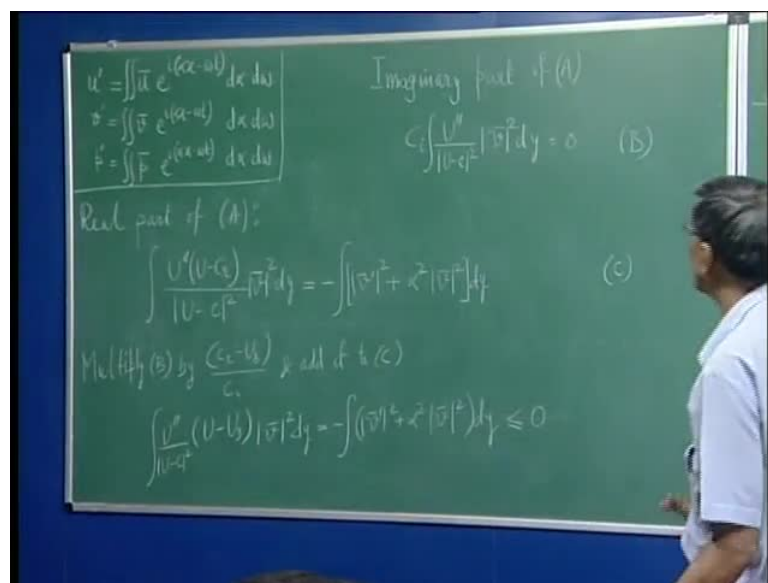 u' = ∬ ū e^{i(αx-ωt)} dα dω
v' = ∬ v̄ e^{i(αx-ωt)} dα dω
p' = ∬ p̄ e^{i(αx-ωt)} dα dω
Imaginary part of (A)
C_i ∫ U''/|U-c|² |v̄|² dy = 0 (B)
Real part of (A):
∫ U''(U-C_r)/|U-c|² |v̄|² dy = -∫[|v̄'|² + α² |v̄|²] dy (C)
Multiply (B) by (C_r-U_s)/C_i & add it to (C)
∫ U''/|U-c|² (U-U_s) |v̄|² dy = -∫(|v̄'|² + α² |v̄|²) dy ≤ 0